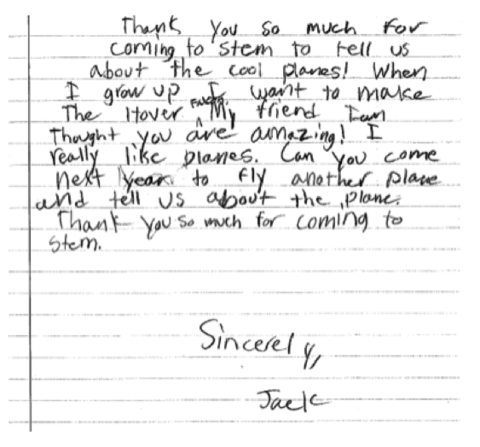 Thank you so much for
coming to stem to tell us
about the cool planes! When
I grow up I want to make
The Hover My friend
Thought you are amazing! I
really like planes. Can you come
next year to fly another plane
and tell us about the plane.
Thank you so much for coming to
stem.
Sincerely,
Jack